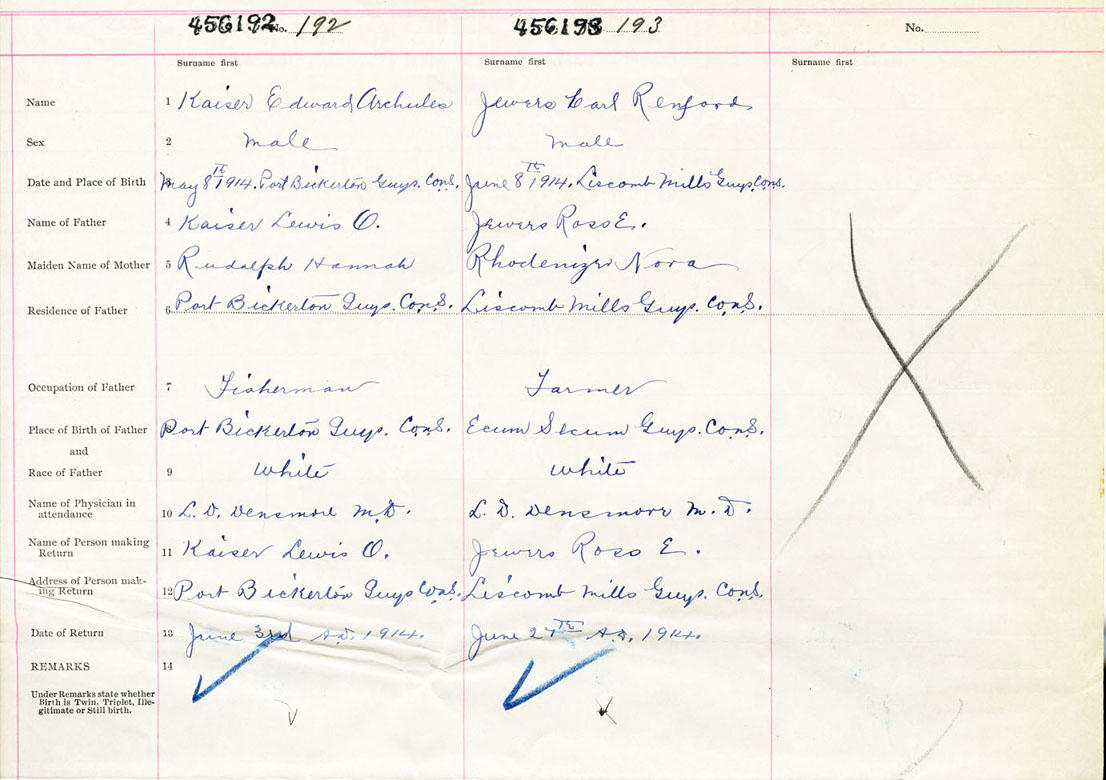 456192 No. 192 456193 193 No.
Surname first Surname first Surname first
Name 1 Kaiser Edward Archules Jewers Carl Renford
Sex 2 male male
Date and Place of Birth 3 May 8th 1914. Port Bickerton Guys. Co N.S. June 8th 1914. Liscomb Mills Guys Co N.S.
Name of Father 4 Kaiser Lewis O. Jewers Ross E.
Maiden Name of Mother 5 Rudolph Hannah Rhodenizer Nora
Residence of Father 6 Port Bickerton Guys. Co N.S. Liscomb Mills Guys. Co N.S.
Occupation of Father 7 Fisherman Farmer
Place of Birth of Father 8 Port Bickerton Guys. Co N.S. Ecum Secum Guys. Co N.S.
and
Race of Father 9 White White
Name of Physician in
attendance 10 L. D. Densmore M.D. L. D. Densmore M.D.
Name of Person making
Return 11 Kaiser Lewis O. Jewers Ross E.
Address of Person mak-
ing Return 12 Port Bickerton Guys Co N.S. Liscomb Mills Guys. Co N.S.
Date of Return 13 June 3rd A.D. 1914. June 27th A.D. 1914.
REMARKS 14
Under Remarks state whether
Birth is Twin, Triplet, Ille-
gitimate or Still birth.